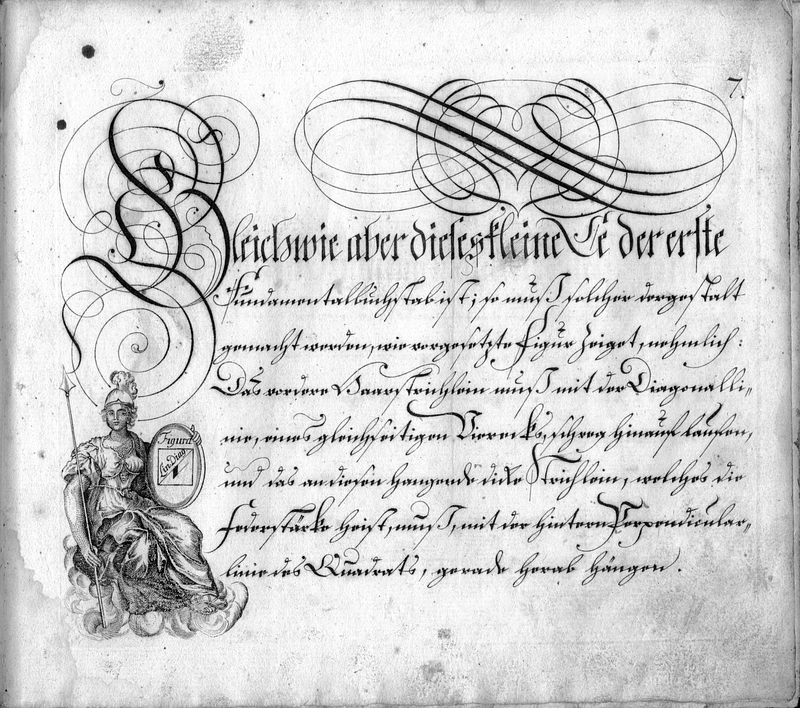 7.
Gleichwie aber dieses kleine Cé der erste
Fundamentalbuchstab ist; so muß solcher dergestalt
gemacht werden, wie vorgesetzte Figur zeiget, nehmlich:
Das vordere Haarstrichlein muß mit der Diagonalli„
nie, eines gleichseitigen Vierecks, schreg hinauf laufen,
und das an diesen hangende dicke Strichlein, welches die
Federstärke heist, muß, mit der hintern Perpendicular„
linie des Quadrats, gerade herab hängen.
Figura